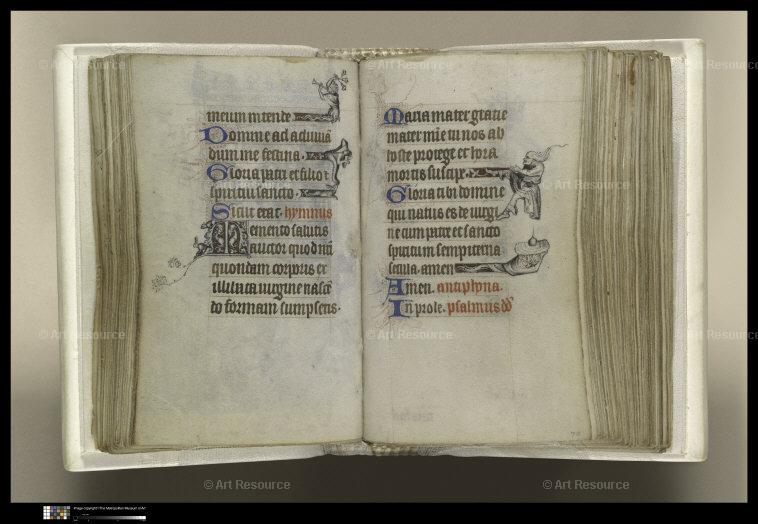 meum intende
Domine ad adiuvā
dum me festina.
Gloria patri et filio ⁊
spiritui sancto.
Sicut erat. hymnus
Memento salutis
auctor quod nr̄i
quondam corporis ex
illibata virgine nascē
do formam sumpseris.
Maria mater gratie
mater mie tu nos ab
hoste protege et hora
mortis suscipe.
Gloria tibi domine
qui natus es de virgi
ne cum patre et sancto
spiritum sempiterna
secula. amen
Amen. antiphona.
In prole. psalmus dd
© Art Resource
© Art Resource
© Art Resource
© Art Resource
© Art Resource
© Art Resource
© Art Resource
© Art Resource
© Art Resource
© Art Resource
Image copyright The Metropolitan Museum of Art